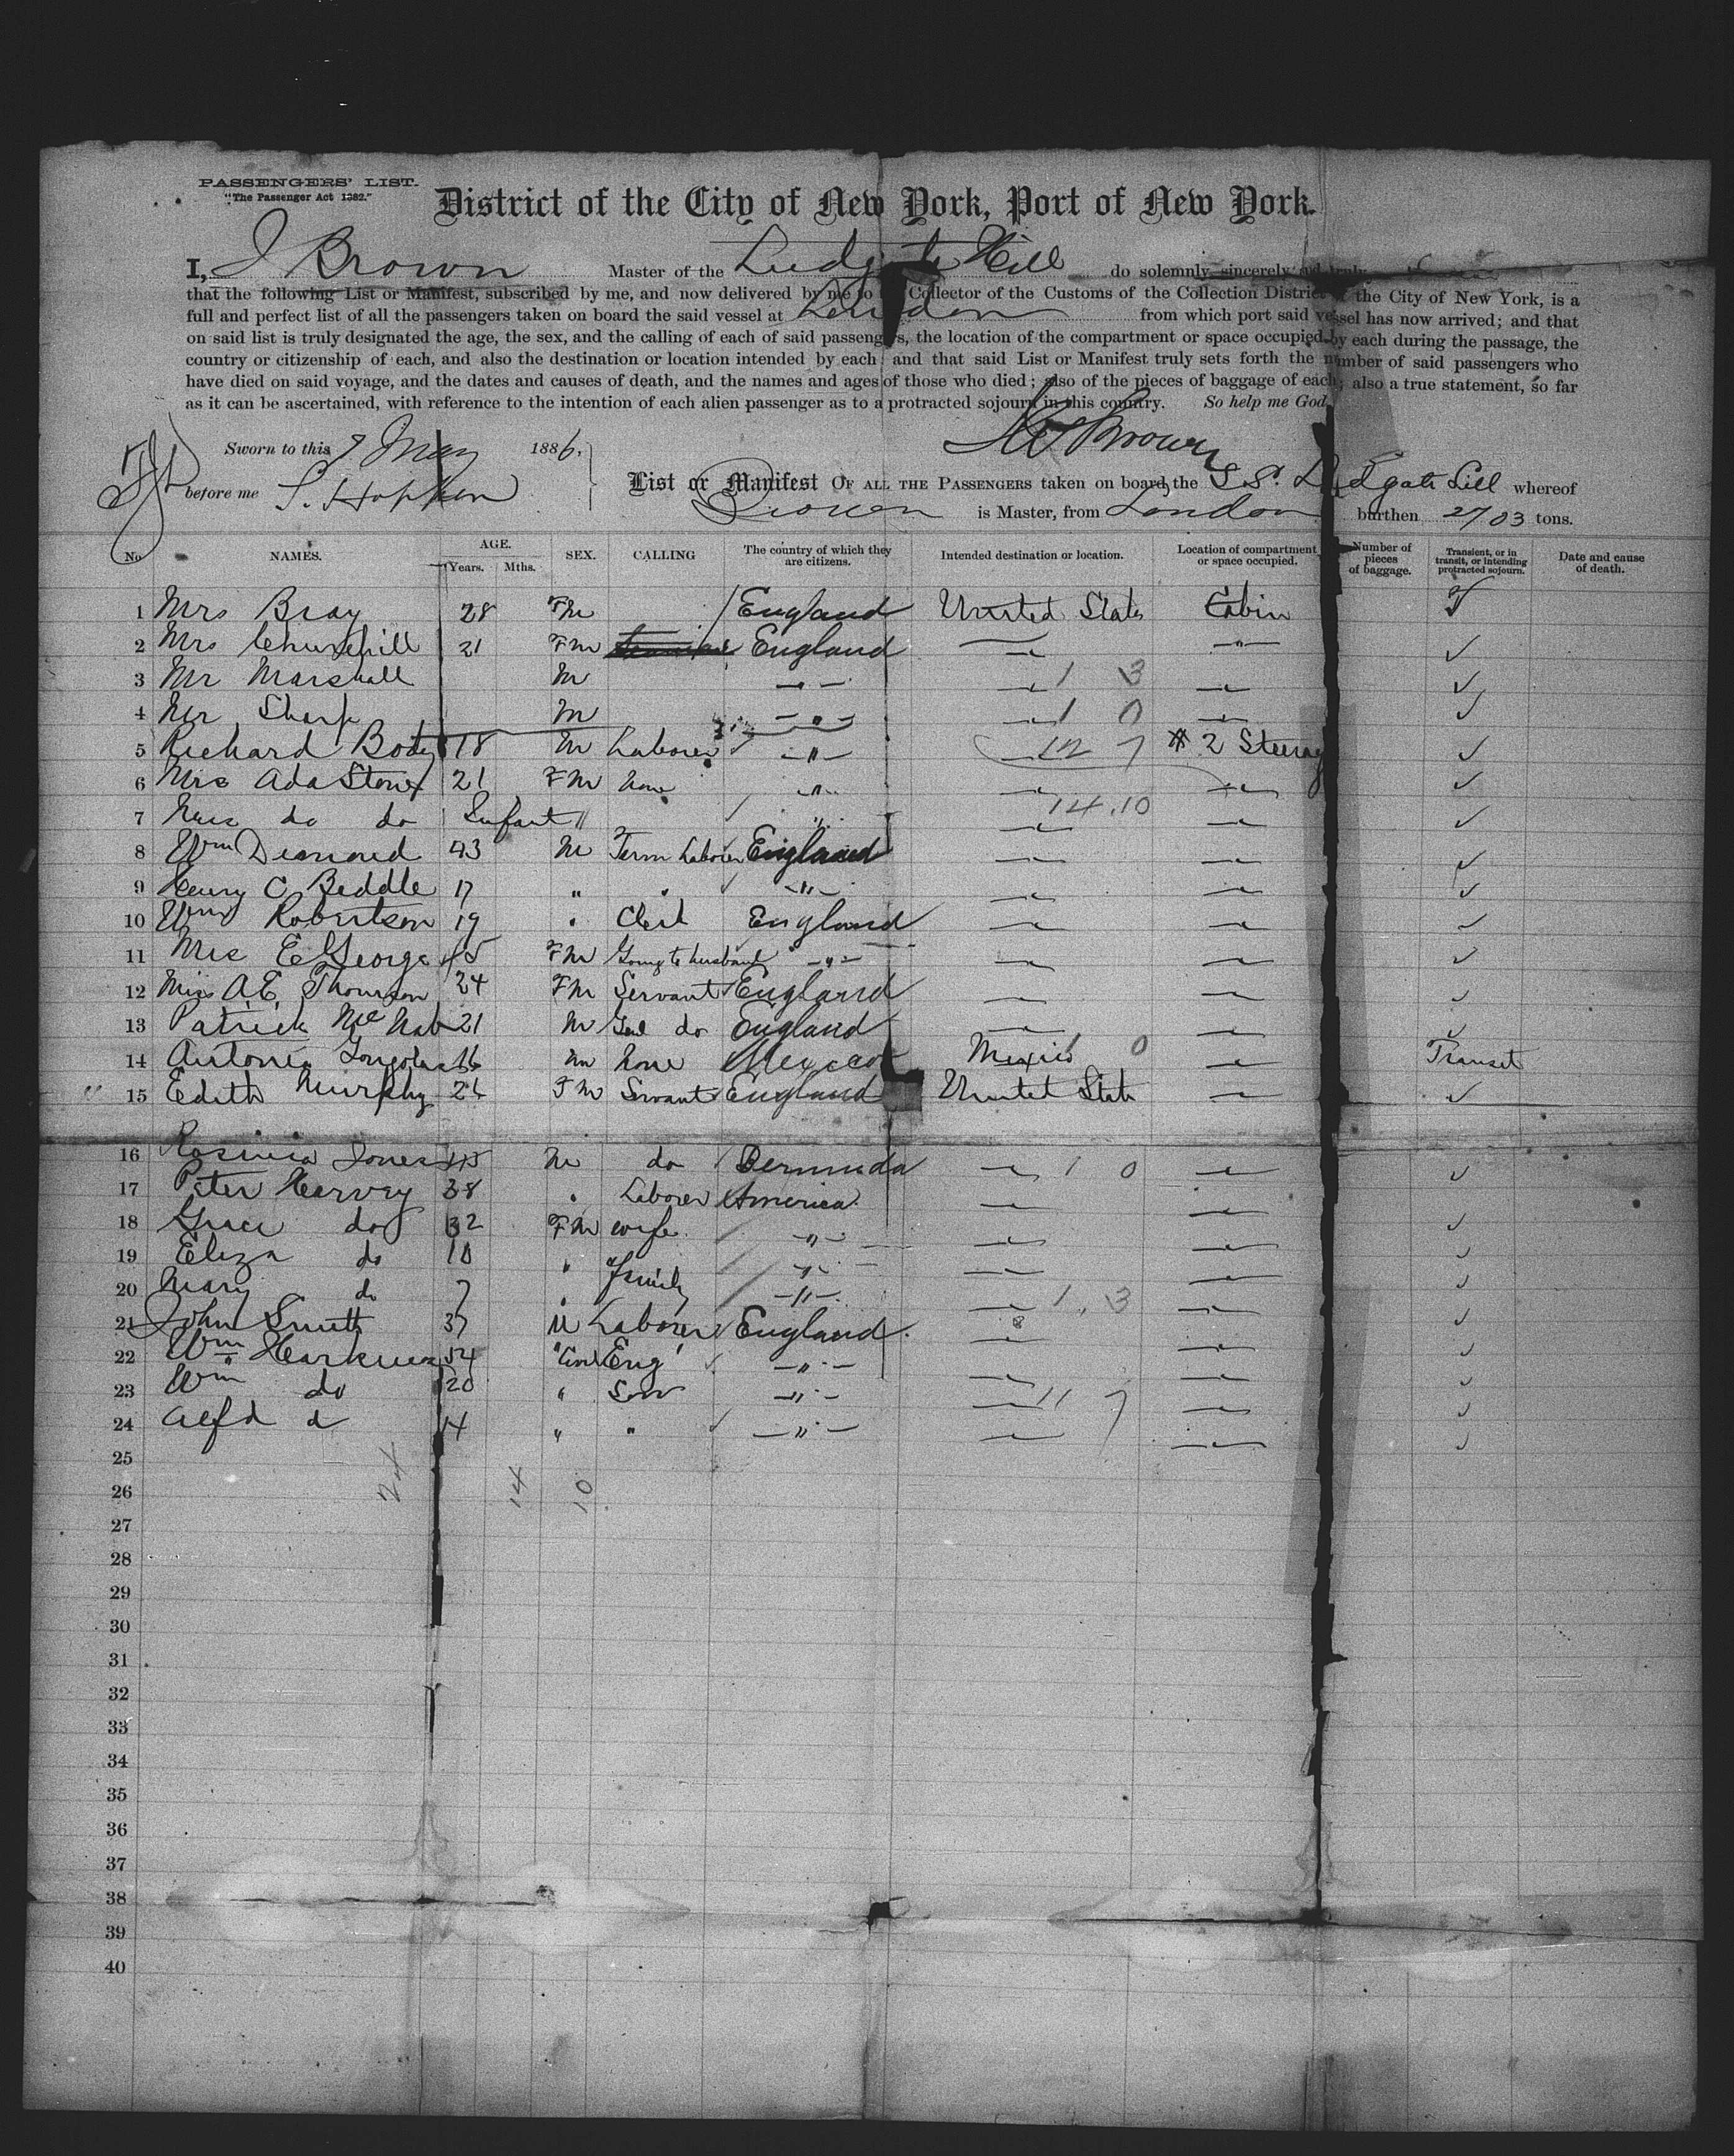 PASSENGERS' LIST.
"The Passenger Act 1882."
District of the City of New York, Port of New York.
I, J Brown Master of the Ludgate Hill do solemnly, sincerely and truly
that the following List or Manifest, subscribed by me, and now delivered by me to Collector of the Customs of the Collection District the City of New York, is a
full and perfect list of all the passengers taken on board the said vessel at London from which port said vessel has now arrived; and that
on said list is truly designated the age, the sex, and the calling of each of said passengers, the location of the compartment or space occupied by each during the passage, the
country or citizenship of each, and also the destination or location intended by each and that said List or Manifest truly sets forth the number of said passengers who
have died on said voyage, and the dates and causes of death, and the names and ages of those who died; also of the pieces of baggage of each; also a true statement, so far
as it can be ascertained, with reference to the intention of each alien passenger as to a protracted sojourn in this country. So help me God.
Brown
Sworn to this 7 May 1886,
before me S. Hopken
List or Manifest OF ALL THE PASSENGERS taken on board the S.S. Ludgate Hill whereof
Brown is Master, from London burthen 2703 tons.
No NAMES. AGE. Years. Mths. SEX. CALLING The country of which they are citizens. Intended destination or location. Location of compartment or space occupied. Number of pieces of baggage. Transient, or in transit, or intending protracted sojourn. Date and cause of death.
1 Mrs Bray 28 Fm England United States Cabin
2 Mrs Churchill 21 Fm England " ✓
3 Mr Marshall M " 1 3 ✓
4 Mr Sharp M " 1 0 ✓
5 Richard Body 18 M Laborer " 12 7 # 2 Steerag ✓
6 Mrs Ada Stone 21 Fm none " ✓
7 do do Infant " " 14.10 ✓
8 Wm Desmond 43 M Farm Laborer England ✓
9 Henry C Beddle 17 " " " ✓
10 Wm Robertson 19 " Clerk England ✓
11 Mrs E George 45 Fm Going to husband " ✓
12 Miss A.E. Thomson 24 Fm Servant England ✓
13 Patrick McNab 21 M do England ✓
14 Antonia 16 m none Mexico Mexico 0 Transit
15 Edith Murphy 26 Fm Servant England United States ✓
16 Jones 45 M do Bermuda 1 0 ✓
17 Peter Harvey 38 " Laborer America
18 Grace do 32 Fm wife " ✓
19 Eliza do 10 " family " ✓
20 Mary do 7 " " 1. 3 ✓
21 John Smith 37 M Laborer England 8 ✓
22 Wm 54 " Civil Eng " ✓
23 Wm do 20 " Son " 11 7 ✓
24 Alfd d 14 " " " ✓
25
24 14 10
26
27
28
29
30
31
32
33
34
35
36
37
38
39
40